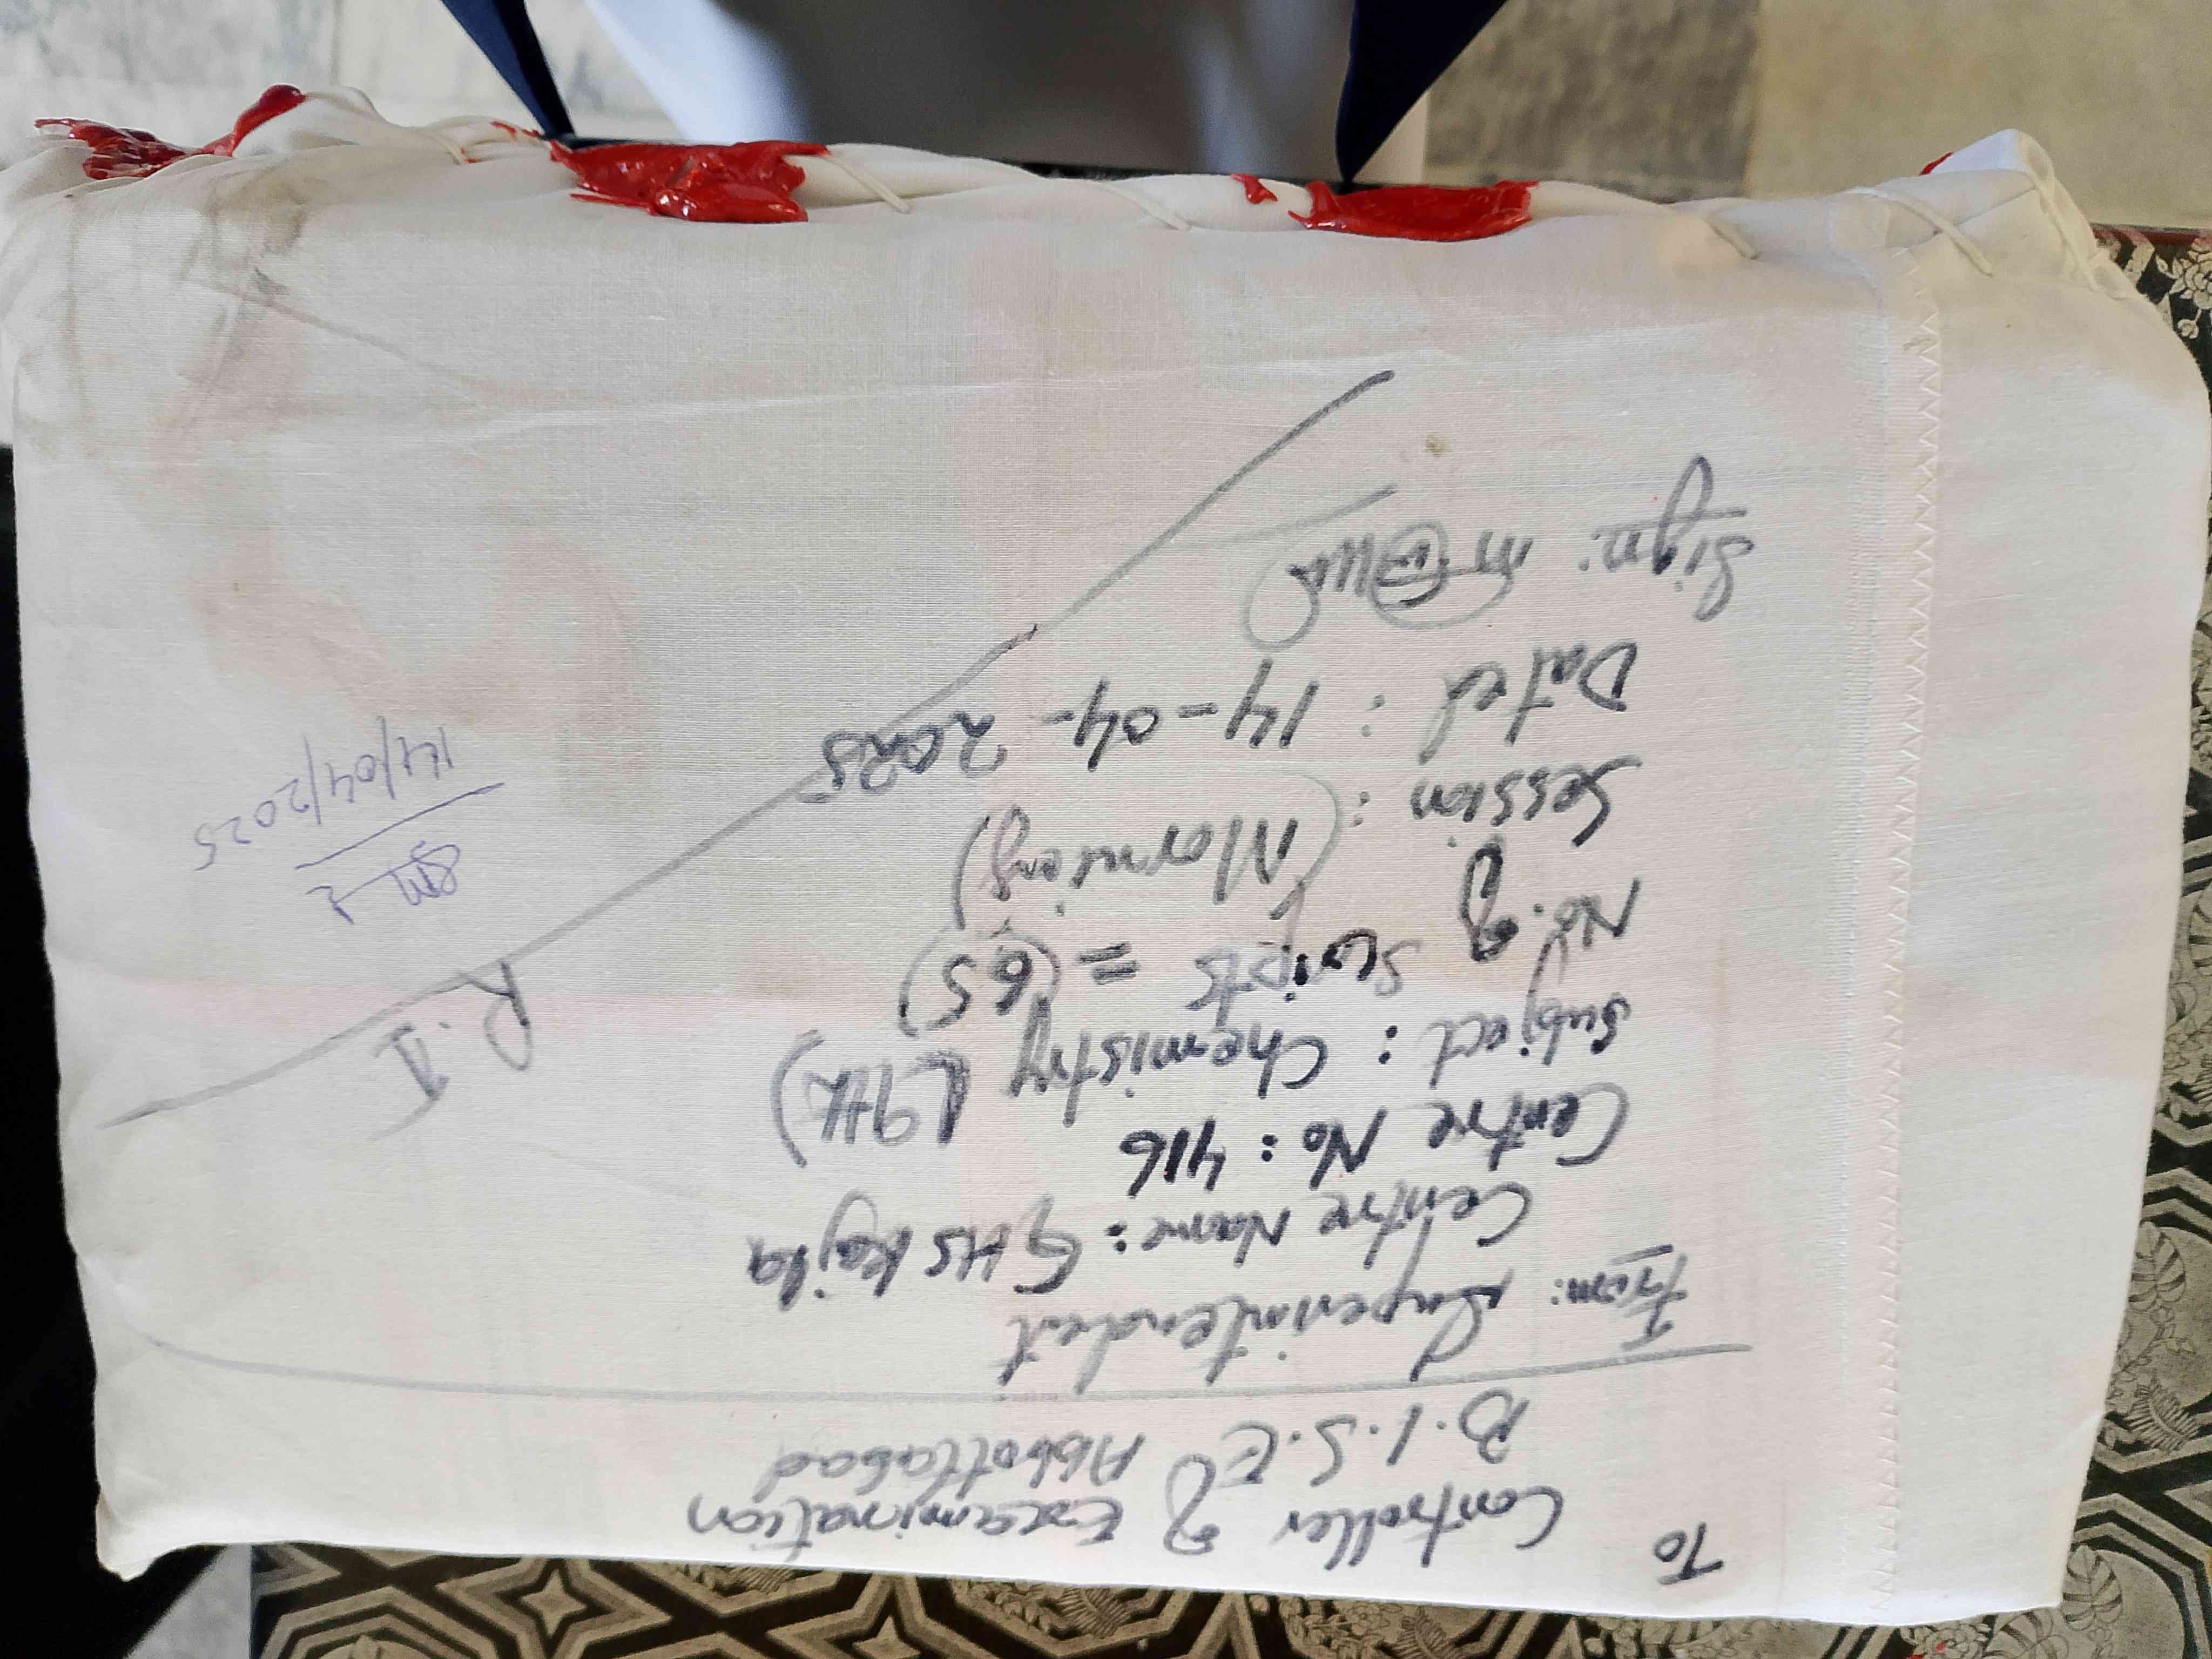 To
Controller of Examination
B.I.S.E Abbottabad
From: Superintendent
Centre Name: GHS Kajla
Centre No: 416
Subject: Chemistry (9th)
No. of Scripts = (65)
Session: (Morning)
Dated: 14-04-2025
Sign:
R.I
14/04/2025